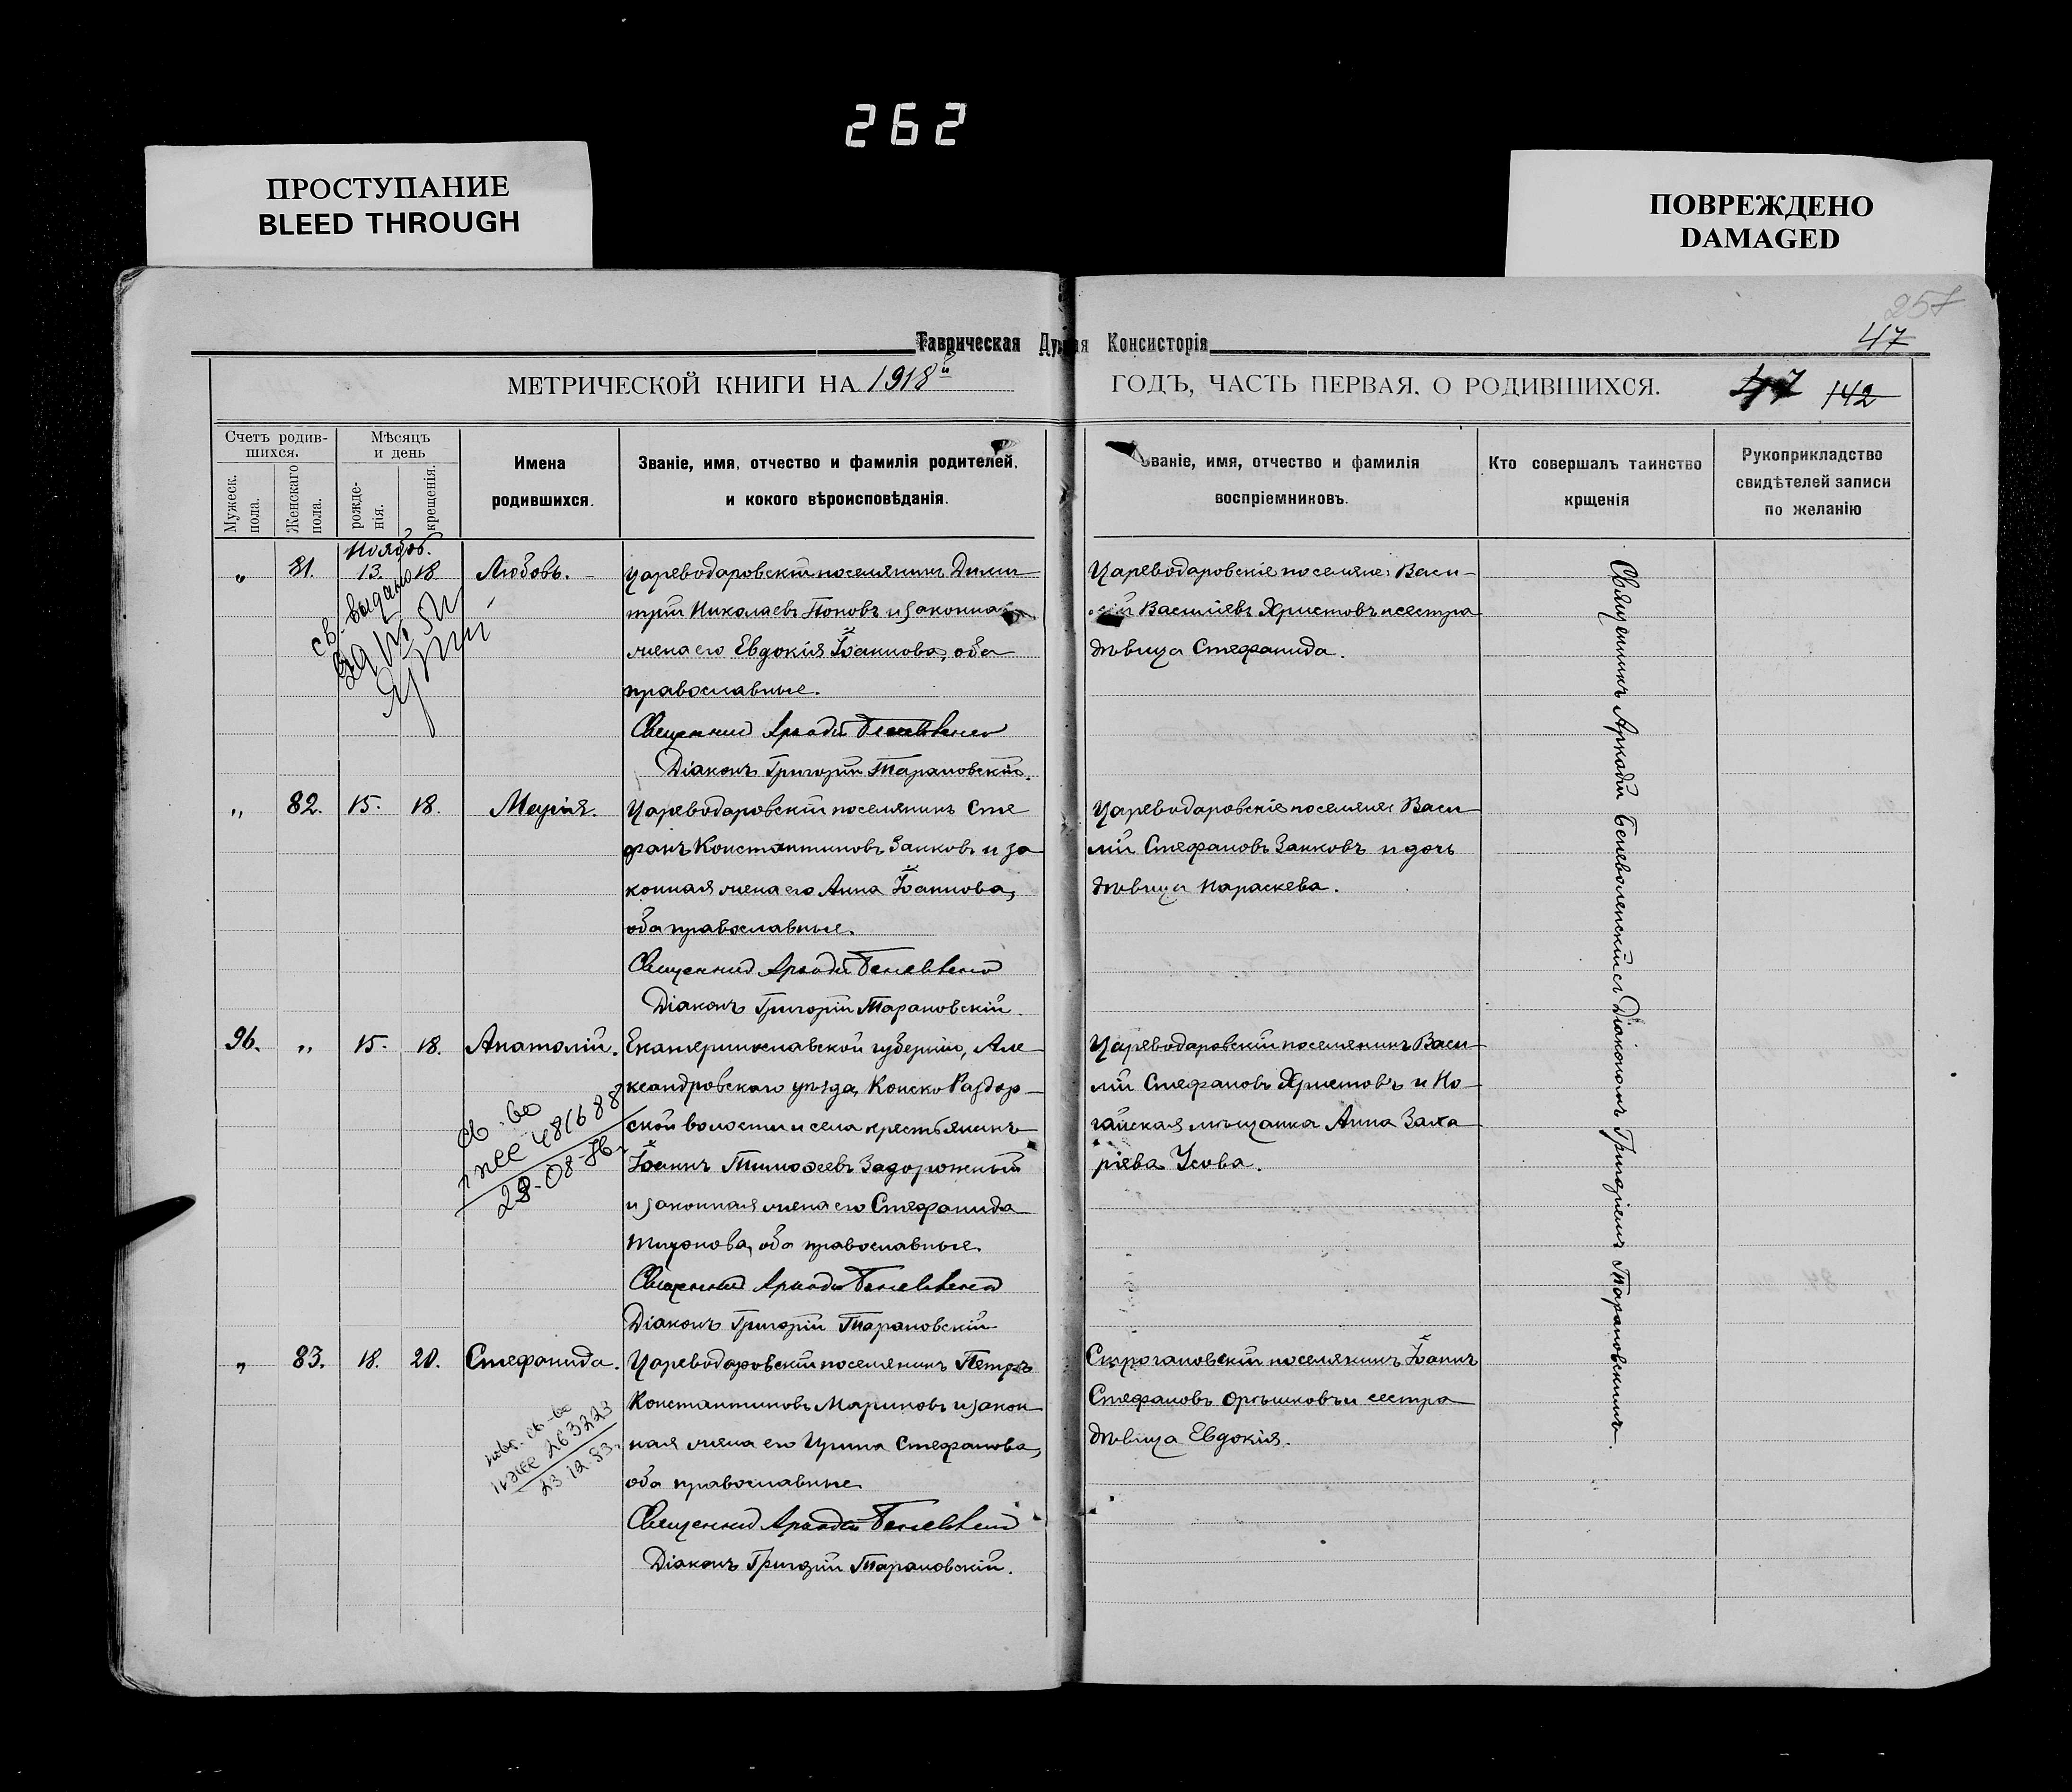 262
ПРОСТУПАНИЕ
BLEED THROUGH
ПОВРЕЖДЕНО
DAMAGED
257
Таврическая Ду ая Консисторія
47
МЕТРИЧЕСКОЙ КНИГИ НА 1918й ГОДЪ, ЧАСТЬ ПЕРВАЯ, О РОДИВШИХСЯ.
47 142
Счетъ родив-
шихся.
Мужеск.
пола.
Женскаго
пола.
Мѣсяцъ
и день
рожде-
нія.
крещенія.
Имена
родившихся.
Званіе, имя, отчество и фамилія родителей,
и кокого вѣроисповѣданія.
Званіе, имя, отчество и фамилія
воспріемниковъ.
Кто совершалъ таинство
крщенія
Рукоприкладство
свидѣтелей записи
по желанію
Ноябрь.
„ 81. 13. 18. Любовь.
св. выдано
Цареводаровскій поселянинъ Дими
трій Николаевъ Поповъ и законна
жена его Евдокія Іоаннова, оба
православные.
Священник Аркадій
Діаконъ Григорій Тарановскій.
Цареводаровскіе поселяне: Васи-
лій Василіевъ Христовъ и сестра
дѣвица Стефанида.
„ 82. 15. 18. Марія.
Цареводаровскій поселянинъ Сте
фанъ Константиновъ Занковъ и за
конная жена его Анна Іоаннова,
оба православные.
Священник Аркадій
Діаконъ Григорій Тарановскій.
Цареводаровскіе поселяне: Васи
лій Стефановъ Занковъ и дочь
дѣвица Параскева.
96. „ 15. 18. Анатолій.
св-во
481688
28-08-86
Екатеринославской губерніи, Але
ксандровскаго уѣзда, Конско Раздор-
ской волости и села крестьянинъ
Іоаннъ Тимофеевъ Задорожный
и законная жена его Стефанида
Тихонова, оба православные.
Священник Аркадій
Діаконъ Григорій Тарановскій
Цареводаровскій поселянинъ Васи
лій Стефановъ Христовъ и Но-
гайская мѣщанка Анна Заха
ріева Усова.
„ 83. 18. 20. Стефанида.
повт. св-во
263223
23.12.83.
Цареводаровскій поселянинъ Петръ
Константиновъ Мариновъ и закон
ная жена его Ирина Стефанова,
оба православные
Священник Аркадій
Діаконъ Григорій Тарановскій.
Строгановскій поселянинъ Іоаннъ
Стефановъ и сестра
дѣвица Евдокія.
Священникъ Аркадій съ Діакономъ Григоріемъ Тарановскимъ.